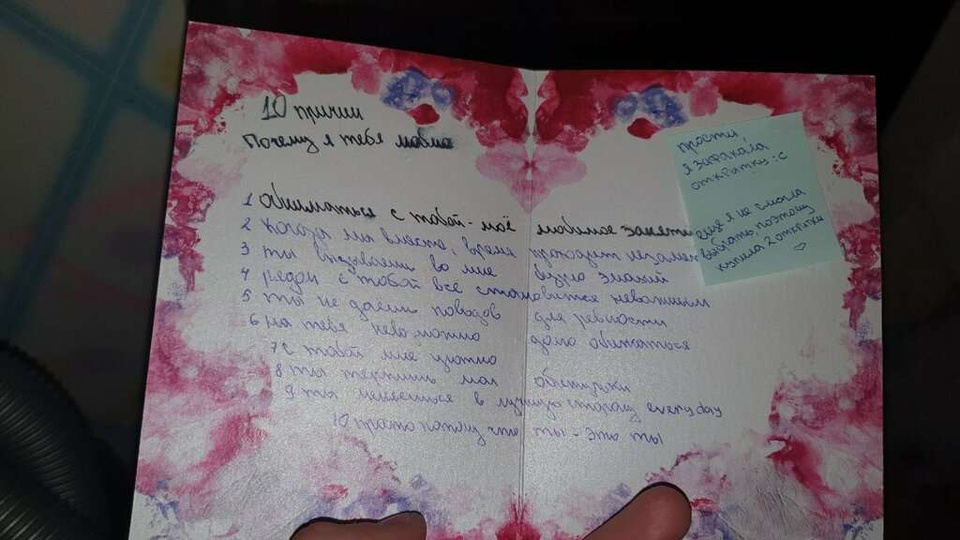 10 причин
Почему я тебя люблю
1 Обниматься с тобой - моё любимое заняти
2 Когда мы вместе, время проходит незамет
3 ты вызываеш во мне бурю эмоций
4 рядом с тобой всё становится неважным
5 ты не даеш поводов для ревности
6 на тебя невозможно долго обижаться
7 с тобой мне уютно
8 ты терпишь мои
9 ты меняешься в лучшую сторону everyday
10 просто потому что ты - это ты
прости,
я закакала
открытку :с
ещё я не смогла
выбрать, поэтому
купила 2 открытки
♡